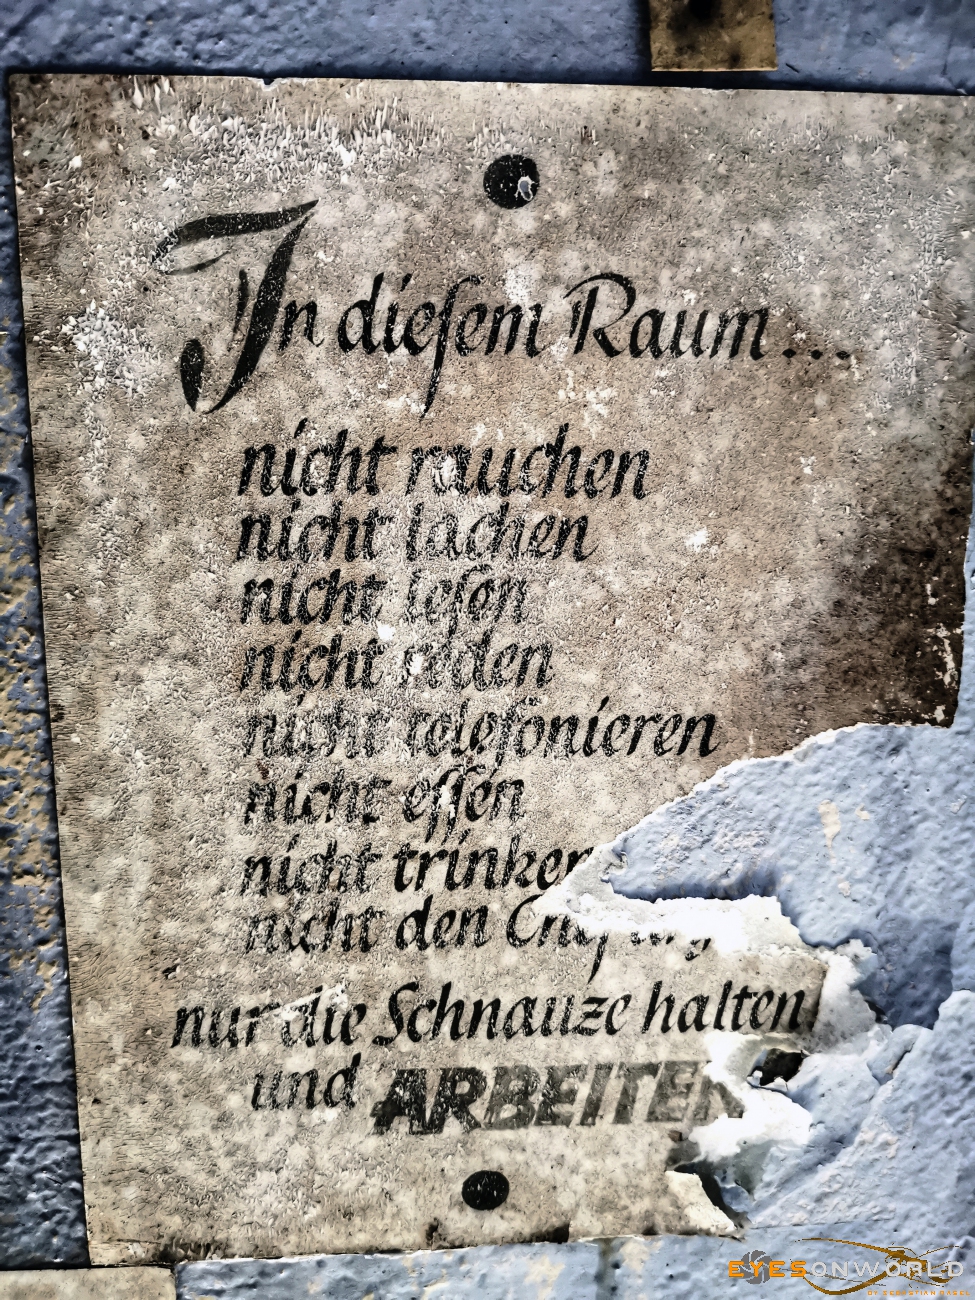 In dieſem Raum...
nicht rauchen
nicht lachen
nicht leſen
nicht reden
nicht telefonieren
nicht eſſen
nicht trinken
nicht den
nur die Schnauze halten
und ARBEITEN
EYESONWORLD
BY SEBASTIAN